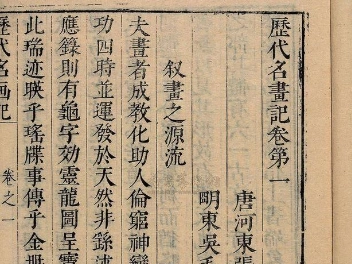 歷代名畫記卷第一
唐河東張
明東吳毛
叙畫之源流
夫畫者成教化助人倫窮神變
功四時並運發於天然非繇述
應籙則有龜字効靈龍圖呈寶
此瑞迹暎乎瑤牒事傳乎金册
歷代名画记
卷之一